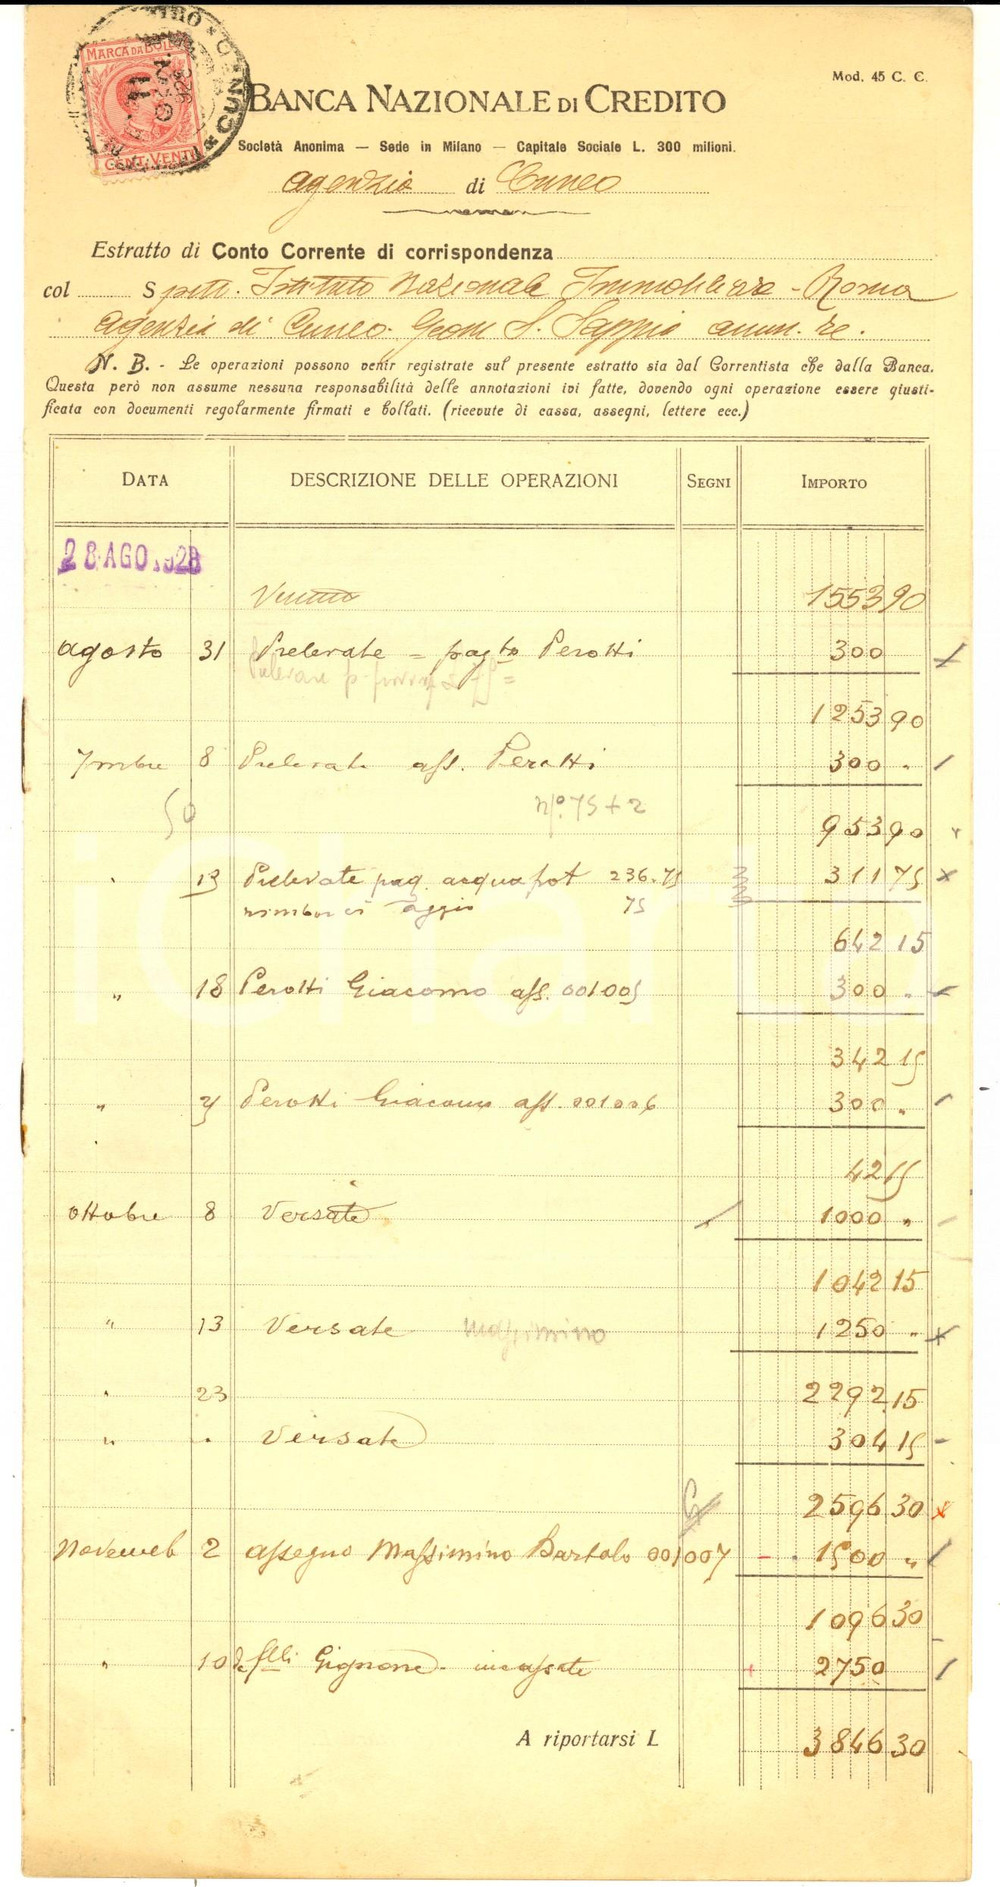 MARCA DA BOLLO
CENT. VENTI
CUNEO
Mod. 45 C. C.
BANCA NAZIONALE DI CREDITO
Società Anonima — Sede in Milano — Capitale Sociale L. 300 milioni.
Agenzia di Cuneo
Estratto di Conto Corrente di corrispondenza
col Spett. Istituto Nazionale Immobiliare - Roma
Agenzia di Cuneo. Geom S. Sappia amm.re.
N. B. - Le operazioni possono venir registrate sul presente estratto sia dal Correntista che dalla Banca.
Questa però non assume nessuna responsabilità delle annotazioni ivi fatte, dovendo ogni operazione essere giusti-
ficata con documenti regolarmente firmati e bollati. (ricevute di cassa, assegni, lettere ecc.)
DATA DESCRIZIONE DELLE OPERAZIONI SEGNI IMPORTO
28 AGO 1928
1553 90
agosto 31 Prelevate = pagto Perotti 300
1253 90
7mbre 8 Prelevate ass. Perotti 300 "
50 n°. 75 + 2
953 90
13 Prelevate pag. acqua pot 236.75 311 75
rimborsi aggio 75
642 15
" 18 Perotti Giacomo ass. 001005 300 "
342 15
" Perotti Giacomo ass. 001006 300 "
42 15
ottobre 8 Versate 1000 "
1042 15
" 13 Versate Massimino 1250 "
" 23 2292 15
" " Versate 304 15
2596 30
Novemb 2 assegno Massimino Bartolo 001007 - 1500 "
1096 30
" 10 flli Gignone incassate + 2750
A riportarsi L 3846 30
iCharta